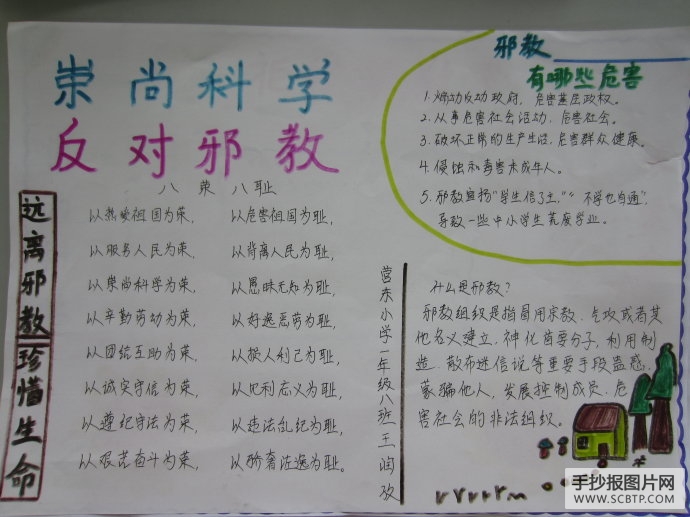 崇尚科学
反对邪教
八荣八耻
以热爱祖国为荣，以危害祖国为耻，
以服务人民为荣，以背离人民为耻，
以崇尚科学为荣，以愚昧无知为耻，
以辛勤劳动为荣，以好逸恶劳为耻，
以团结互助为荣，以损人利己为耻，
以诚实守信为荣，以见利忘义为耻，
以遵纪守法为荣，以违法乱纪为耻，
以艰苦奋斗为荣，以骄奢淫逸为耻。
远离邪教珍惜生命
邪教
有哪些危害
1. 煽动反动政府，危害基层政权。
2. 从事危害社会活动，危害社会。
3. 破坏正常的生产生活，危害群众健康。
4. 侵蚀和毒害未成年人。
5. 邪教宣扬"学生信了主，""不学也自通"，
导致一些中小学生荒废学业。
营东小学一年级八班王润孜
什么是邪教？
邪教组织是指冒用宗教、气功或者其
他名义建立，神化首要分子，利用制
造、散布迷信说等重要手段蛊惑，
蒙骗他人，发展控制成员，危
害社会的非法组织。
手抄报图片网
WWW.SCBTP.COM